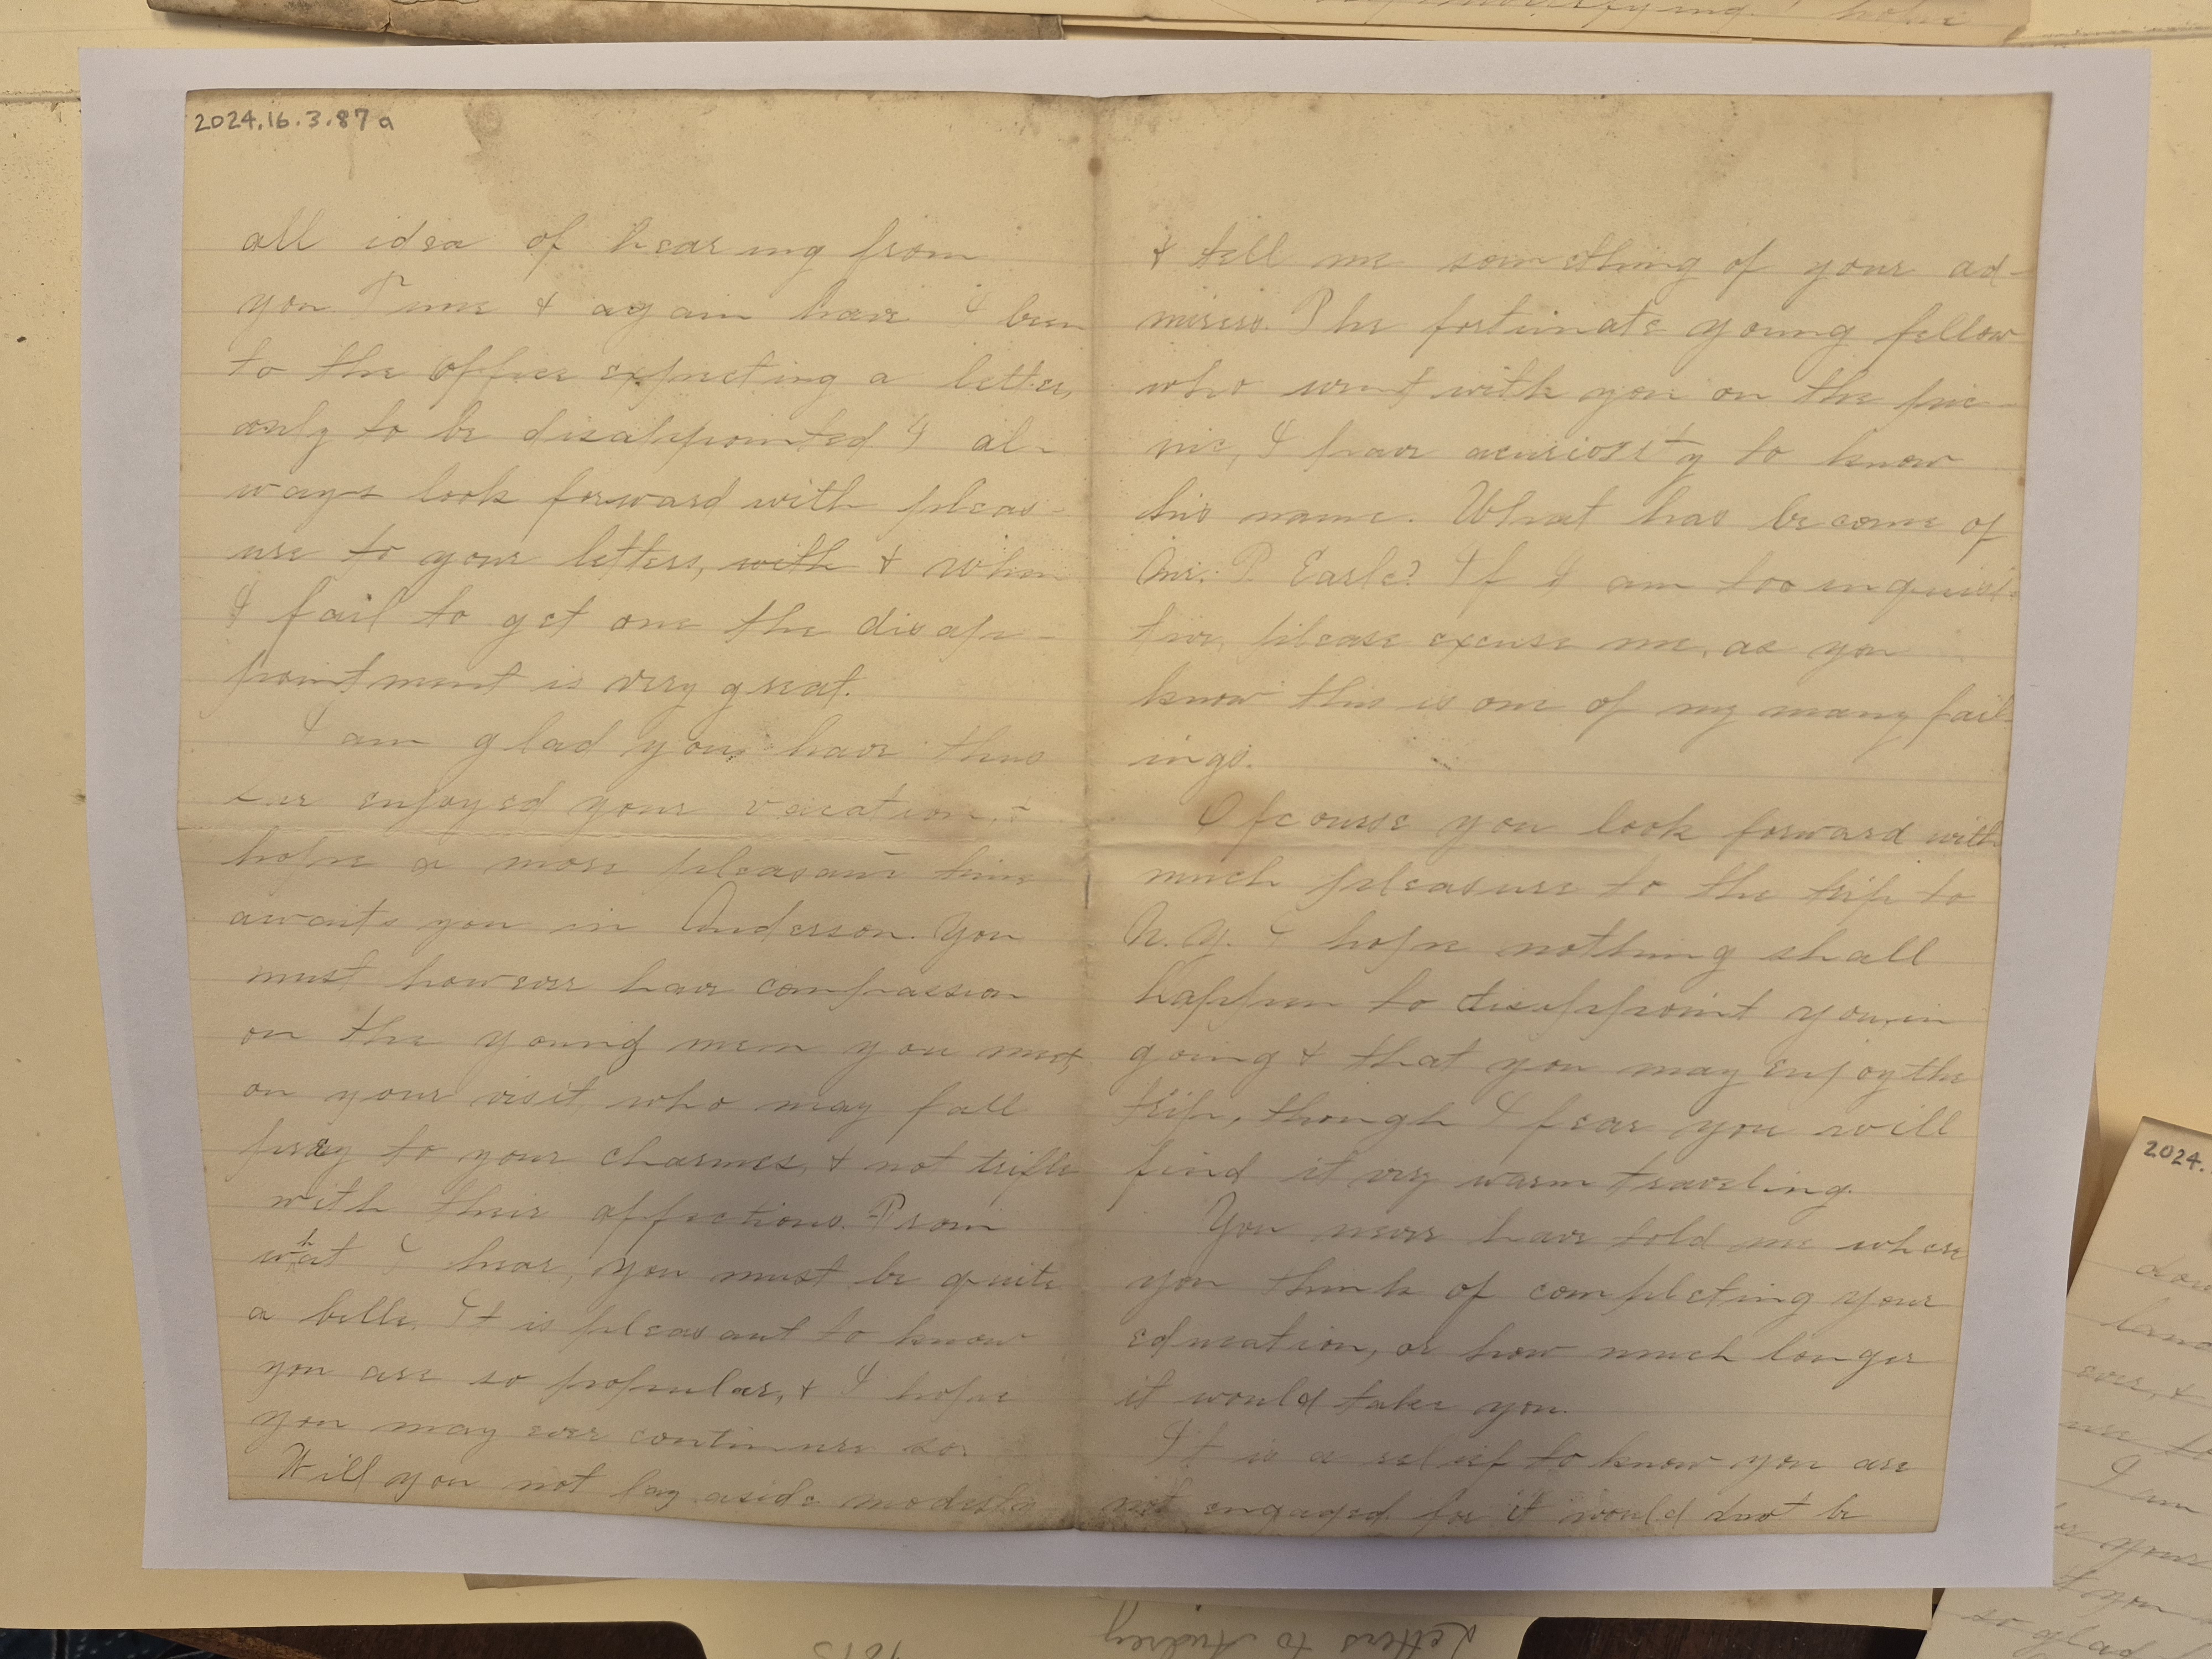 2024.16.3.87a
all idea of hearing from
you. Time & again have I been
to the office expecting a letter,
only to be disappointed I al-
ways look forward with pleas-
ure to your letters, with & when
I fail to get one the disap-
pointment is very great.
I am glad you have thus
far enjoyed your vacation, &
hope a more pleasant time
awaits you in Anderson. You
must however have compassion
on the young men you meet
on your visit who may fall
prey to your charmes, & not trifle
with their affections. From
what I hear, you must be quite
a belle. It is pleasant to know
you are so popular, & I hope
you may ever continue so.
Will you not lay aside modesty
& tell me something of your ad-
mirers. The fortunate young fellow
who went with you on the pic-
nic, I have acuriosity to know
his name. What has become of
P. Earle? If I am too inquisi-
tive, please excuse me, as you
know this is one of my many fail-
ings.
Ofcourse you look forward with
much pleasure to the trip to
N.Y. I hope nothing shall
happen to disappoint you in
going & that you may enjoy the
trip, though I fear you will
find it very warm traveling.
You never have told me where
you think of completing your
education, or how much longer
it would take you.
It is a relief to know you are
not engaged for it would not be
2024.
I am
so glad
Letters to Audrey